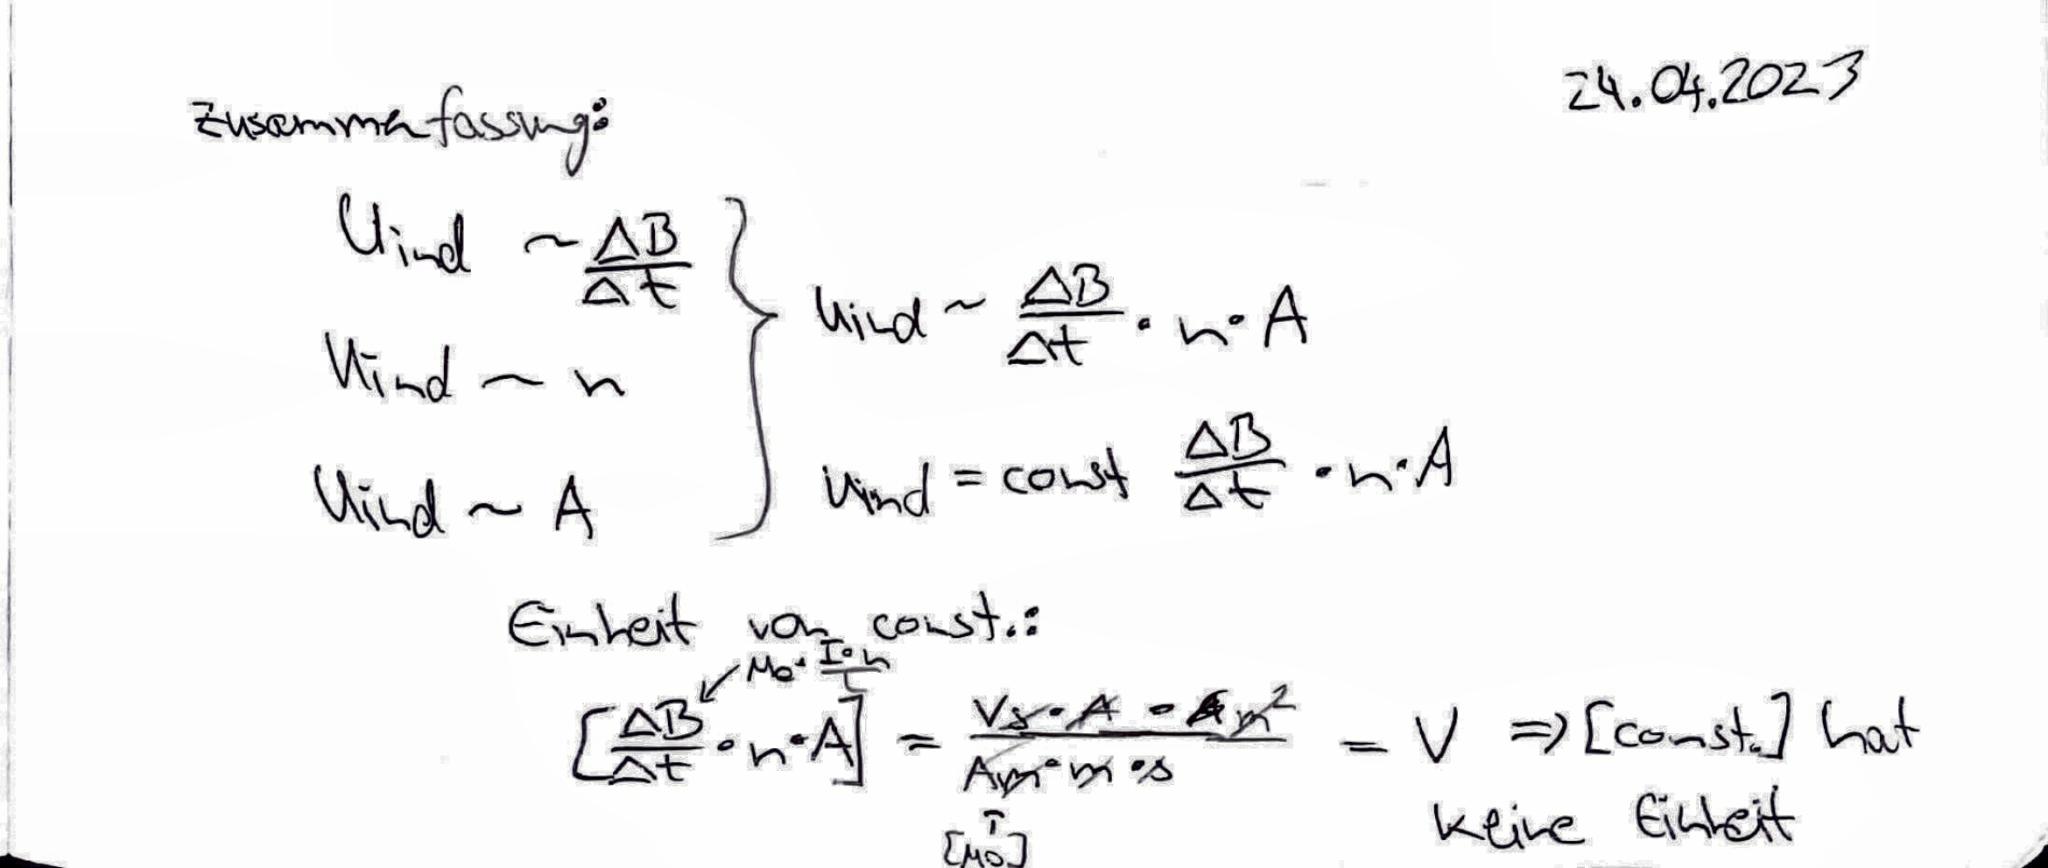 24.04.2023
Zusammenfassung:
Uind ~ ΔB/Δt
Uind ~ n
Uind ~ A
Uind ~ ΔB/Δt · n · A
Uind = const ΔB/Δt · n · A
Einheit von const.:
μ0 · I·n/l
[ΔB/Δt · n · A] = Vs · A · m²/Am · m · s = V ⇒ [const.] hat
keine Einheit
↑
[μ0]